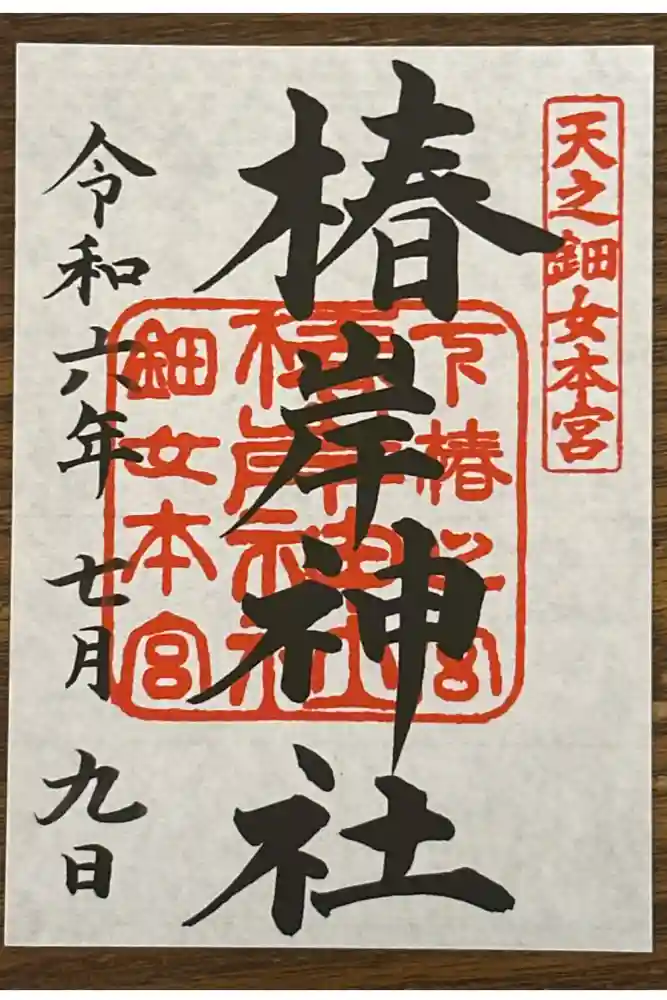 天之鈿女本宮
椿岸神社
下椿之宮
椿岸神社
鈿女本宮
令和六年七月九日